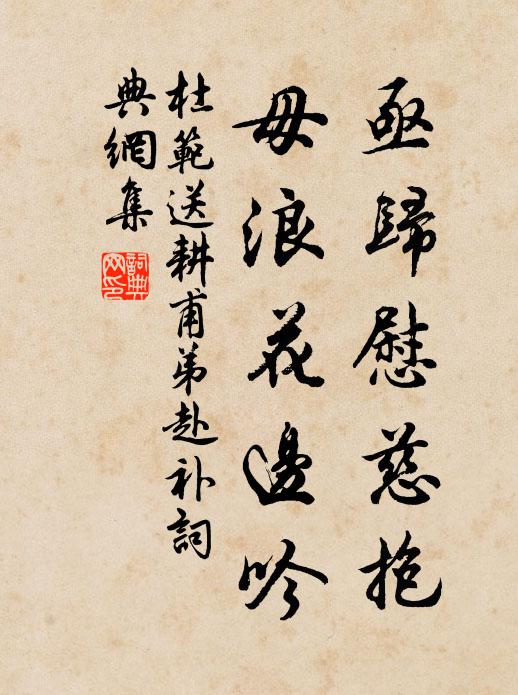 亟歸慰慈抱
毋浪花邊吟
杜範送耕甫弟赴补詞
典網集
詞典网印